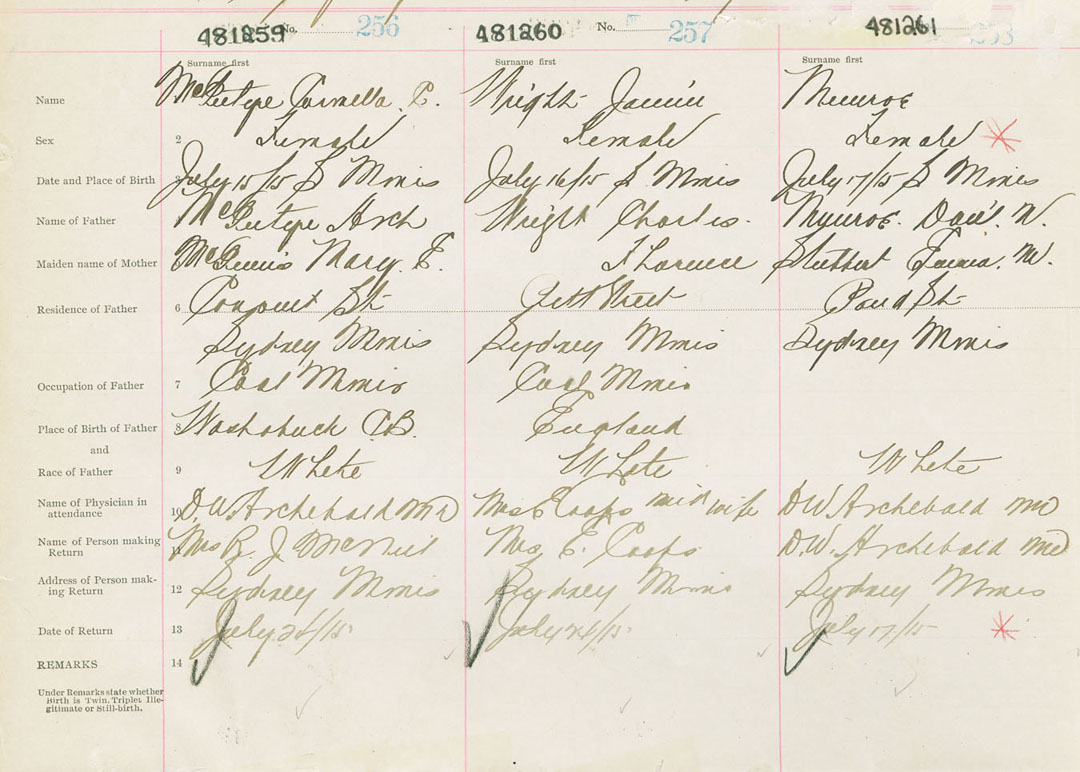 481259 No. 256 481260 No. 257 481261
Surname first Surname first Surname first
Name McIntyre C. Wright Munroe
Sex 2 Female Female Female
Date and Place of Birth July 15/15 S Mines July 16/15 S. Mines July 17/15 S Mines
Name of Father McIntyre Arch Wright Charles. Munroe. Dan'l. W.
Maiden name of Mother McGinnis Mary. E. Florence M.
Residence of Father 6 Convent St Pitt Street Pond St
Sydney Mines Sydney Mines Sydney Mines
Occupation of Father 7 Coal Miner Coal Miner
Place of Birth of Father 8 Washabuck C.B. England
and
Race of Father 9 White White White
Name of Physician in
attendance 10 D.W. Archebald MD Mrs E Coops mid wife D.W. Archebald MD
Name of Person making
Return 11 Mrs R. J. McNeil Mrs. E. Coops. D.W. Archebald MD
Address of Person mak-
ing Return 12 Sydney Mines Sydney Mines Sydney Mines
Date of Return 13 July 24/15 July 24/15 July 17/15
REMARKS 14
Under Remarks state whether
Birth is Twin, Triplet Ille-
gitimate or Still-birth.